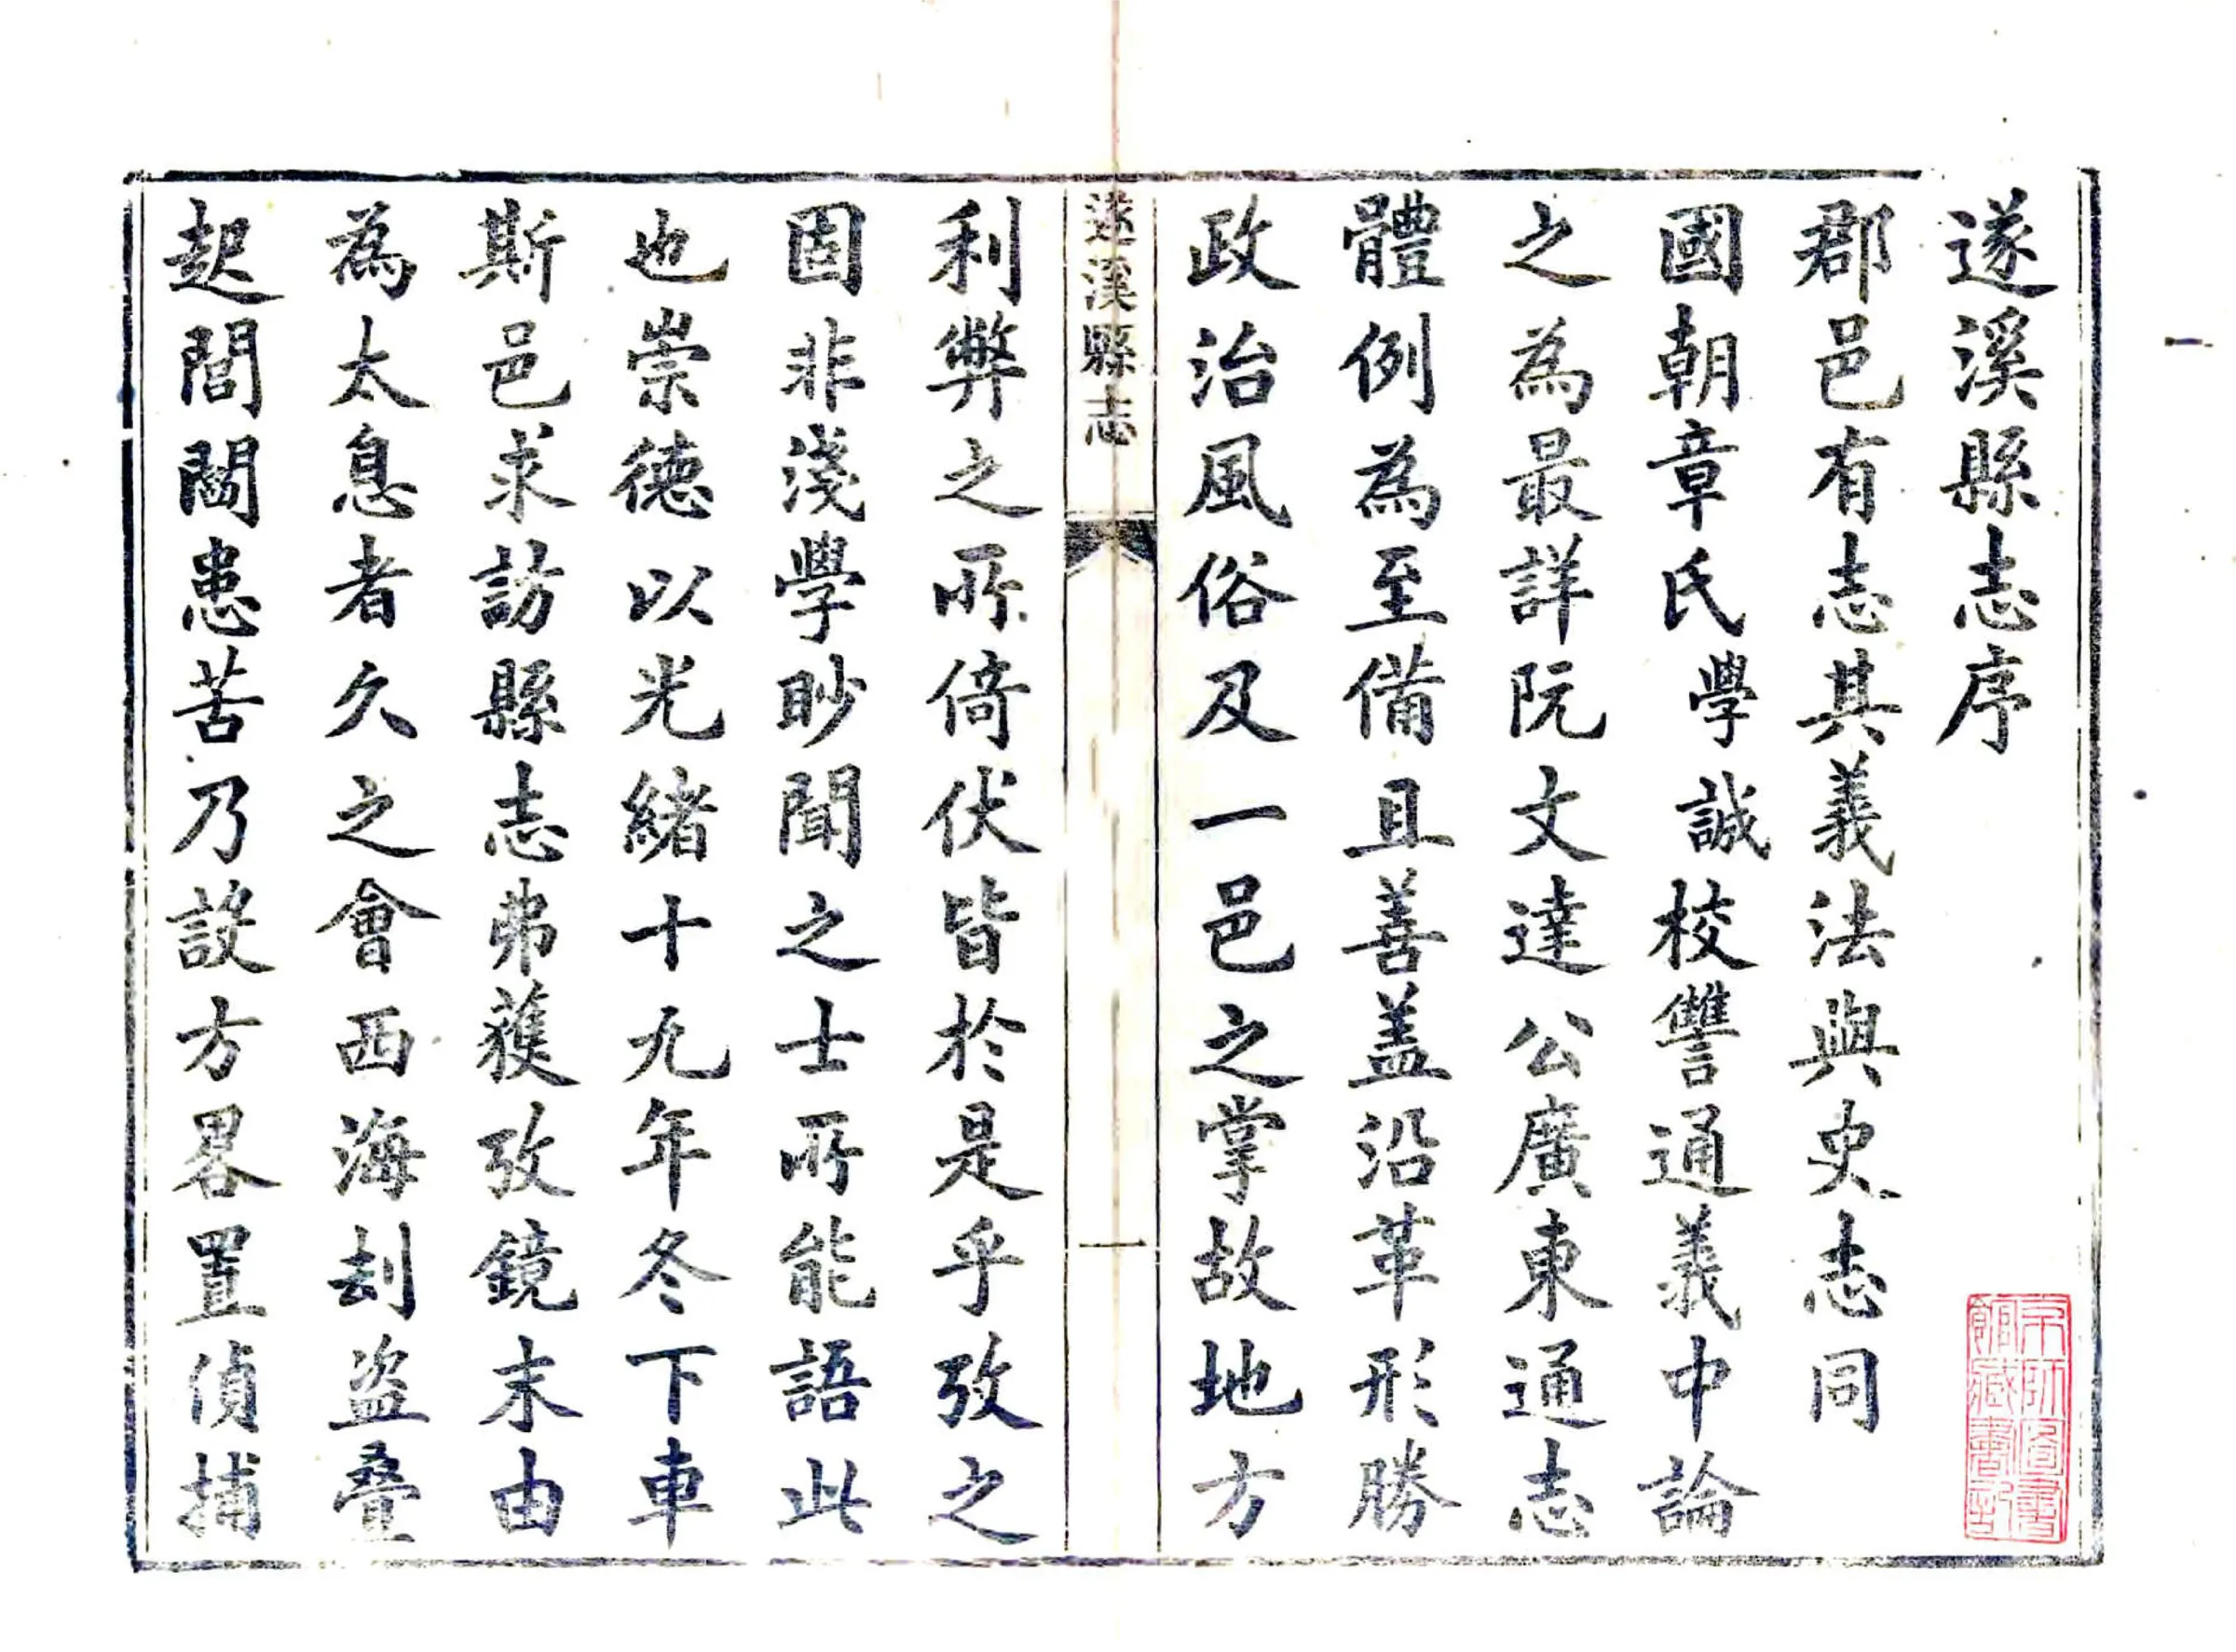 遂溪縣志序
郡邑有志其義法與史志同
國朝章氏學誠校讐通義中論
之為最詳阮文達公廣東通志
體例為至備且善盖沿革形勝
政治風俗及一邑之掌故地方
遂溪縣志
一
利弊之所倚伏皆於是乎攷之
固非淺學眇聞之士所能語此
也崇德以光緒十九年冬下車
斯邑求訪縣志弗獲攷鏡末由
為太息者久之會西海刦盜疊
起閭閻患苦乃設方畧置偵捕